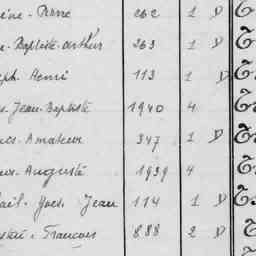 ène - Pierre 262 1 D
n - Baptiste - Arthur 263 1 D
eph - Henri 113 1 D
s. Jean-Baptiste 1940 4
ncis - Amateur 347 1 D
ues - Auguste 1939 4
ail - Yves - Jean 114 1 D
François 888 2 D